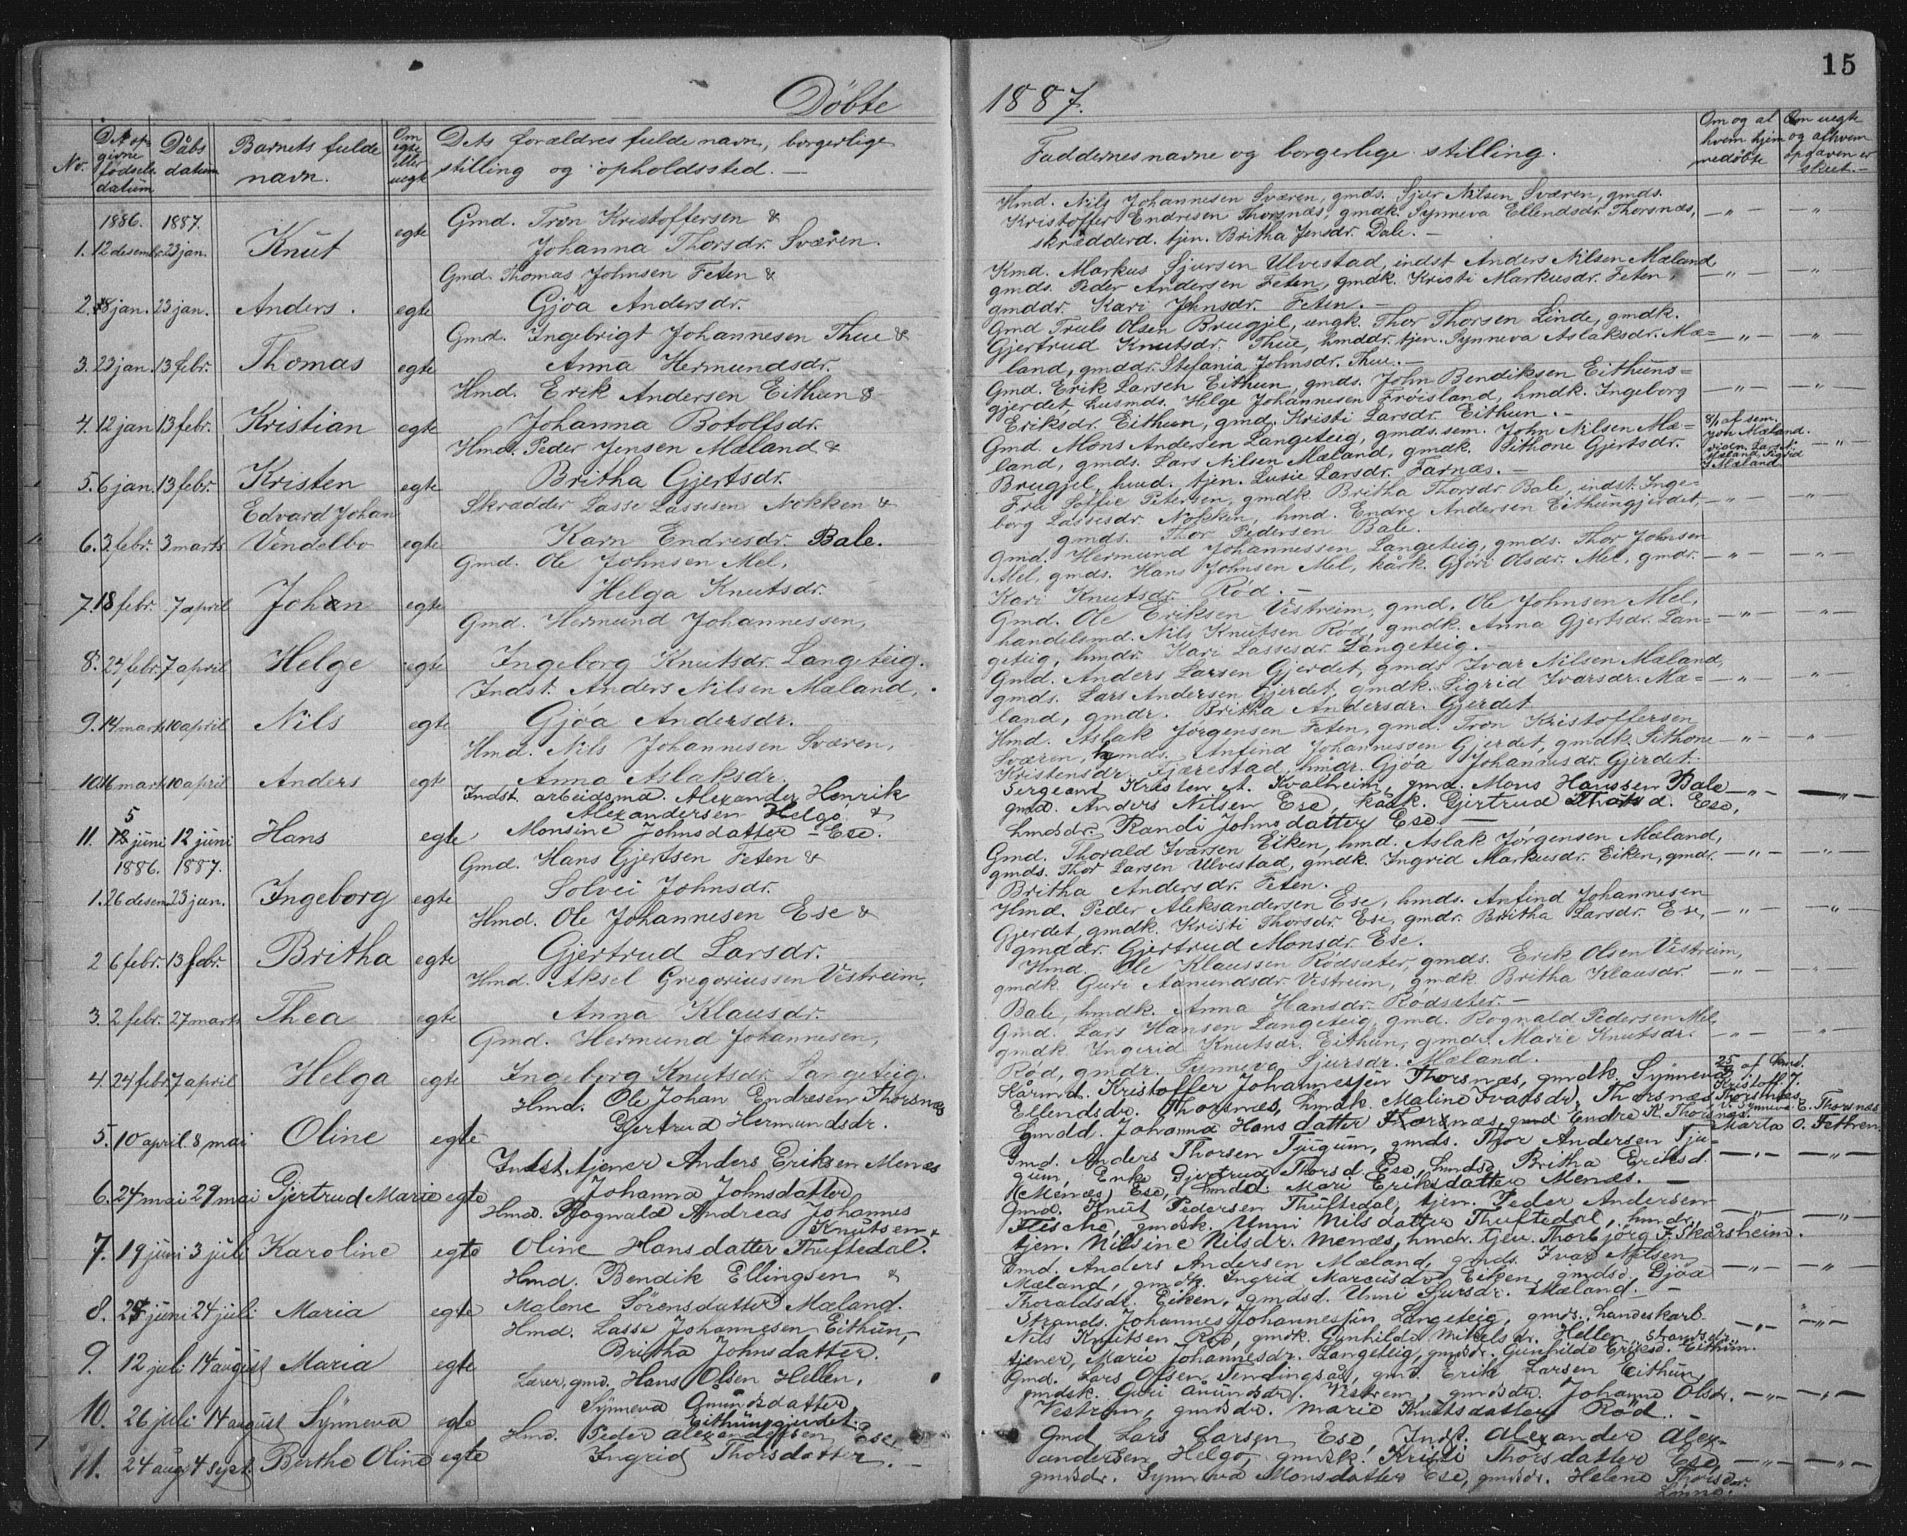 15
Döbte 1887.
No.
Det op-
givne
födsels
datum
Dåbs
datum
Barnets fulde
navn.
Om
egte
eller
uegte
Dets forældres fulde navn, borgerlige
stilling og opholdssted. —
Faddernes navne og borgerlige stilling.
Om og af
hvem hjem
medöbte
Om uegte
og af hvem
opgaven er
skeet. —
1886. 1887.
1. 12 desember 23 jan. Knut egte
Gmd. Tron Kristoffersen &
Johanna Thorsdr. Sværen.
Hmd. Nils Johannesen Sværen, gmds. Sjur Nilsen Sværen, gmds.
Kristoffer Endresen Thorsnæs, gmdk. Synneva Ellendsdr. Thorsnæs,
skrædderd. tjen. Britha Jensdr. Dale. —
2. 8 jan. 23 jan. Anders. egte
Gmd. Thomas Johnsen Feten &
Gjöa Andersdr.
Kmd. Markus Sjursen Ulvestad, indst Anders Nilsen Mæland
gmds. Peder Andersen Feten, gmdk. Kristi Markusdr. Feten,
gmddr. Kari Johnsdr. Feten. —
3. 23 jan. 13 febr. Thomas egte
Gmd. Ingebrigt Johannesen Thue &
Anna Hermundsdr.
Gmd Truls Olsen Brugjil, ungk. Thor Thorsen Linde, gmdk.
Gjertrud Knutsdr. Thue, hmddr. tjen. Synneva Aslaksdr. Mæ=
land, gmddr. Stefania Johnsdr. Thue. —
4. 12 jan 13 febr. Kristian egte
Hmd. Erik Andersen Eithun &
Johanna Botolfsdr.
Gmd. Erik Larsen Eithun, gmds. John Bendiksen Eithuns=
gjerdet, husmds. Helge Johannesen Fröisland, hmdk. Ingeborg
Eriksdr. Eithun, gmd. Kristi Larsdr. Eithun. —
5. 6 jan. 13 febr. Kristen egte
Hmd. Peder Jensen Mæland &
Britha Gjertsdr.
Gmd. Mons Andersen Langeteig, gmds. sem. John Nilsen Mæ=
land, gmds. Lars Nilsen Mæland, gmdk. Pithone Gjertsdr.
Brugjil, hmd. tjen. Lusie Larsdr. Farnæs. —
8/1 af sem.
John Mæland.
6. 3 febr. 3 marts Edvard Johan
Vendelbo egte
Skrædder Lasse Lassesen Nokken &
Karn Endresdr. Bale.
Fru Soffie Petersen, gmdk Britha Thorsdr Bale, indst. Inge-
borg Lassesdr. Nokken, hmd. Endre Andersen Eithungjerdet,
gmds. Thor Pedersen Bale.
7. 18 febr. 7 april Johan egte
Gmd. Ole Johnsen Mel,
Helga Knutsdr.
Gmd. Hermund Johannessen Langeteig, gmds. Thor Johnsen
Mel, gmds. Hans Johnsen Mel, kårk. Gjöri Olsdr. Mel, gmdr.
Kari Knutsdr. Röd. —
8. 24 febr. 7 april Helge egte
Gmd. Hermund Johannessen,
Ingeborg Knutsdr. Langeteig.
Gmd. Ole Eriksen Vestreim, gmd. Ole Johnsen Mel,
handelsmd. Nils Knutsen Röd, gmdk. Anna Gjertsdr. Lan-
geteig, hmdr. Kari Lassesdr. Langeteig. —
9. 14 marts 10 april Nils egte
Indst. Anders Nilsen Mæland,
Gjöa Andersdr.
Gmd. Anders Larsen Gjerdet, gmds Ivar Nilsen Mæland,
gmds. Lars Andersen Gjerdet, gmdk. Sigrid Ivarsdr. Mæ=
land, gmdr. Britha Andersdr. Gjerdet
10. 16 marts 10 april Anders egte
Hmd. Nils Johannesen Sværen,
Anna Aslaksdr.
Hmd. Aslak Jörgensen Feten, gmd. Tron Kristoffersen
Sværen, hmds. Anfind Johannessen Gjerdet, gmdk. Pithone
Kristensdr. Fjærestad, hmdr. Gjöa Johannesdr. Gjerdet.
11. 5 juni 12 juni Hans egte
Indst. arbeidsmd. Alexander Henrik
Alexandersen Helgo &
Monsine Johnsdatter Ese.
Sergeant Kristen A. Kvalheim, gmd. Mons Hanssen Bale
gmd. Anders Nilsen Ese, kårk. Gjertrud Thorsd. Ese,
hmdsdr. Randi Johnsdatter Ese. —
1886. 1887.
1. 26 desem. 23 jan. Ingeborg egte
Gmd. Hans Gjertsen Feten &
Solvei Johnsdr.
Gmd. Thorald Ivarsen Eiken, hmd. Aslak Jörgensen Mæland,
gmds. Thor Larsen Ulvestad, gmdk Ingrid Markusdr. Eiken, gmdr.
Britha Andersdr. Feten.
2 6 febr. 13 febr. Britha egte
Hmd. Ole Johannesen Ese &
Gjertrud Larsdr.
Hmd. Peder Aleksandersen Ese, hmds. Anfind Johannesen
Gjerdet, gmdk. Kristi Thorsdr. Ese, gmdr. Britha Larsdr. Ese,
gmddr. Gjertrud Monsdr. Ese.
3. 2 febr. 27 marts Thea egte
Hmd. Aksel Gregoriussen Vestreim,
Anna Klausdr.
Hmd. Ole Klaussen Rödseter, gmds. Erik Olsen Vestreim,
gmdk Guri Aamundsdr. Vestreim, gmdk Britha Klausdr.
Bale, hmdk. Anna Hansdr. Rödseter. —
4. 24 febr. 7 april Helga egte
Gmd. Hermund Johannesen,
Ingeborg Knutsdr. Langeteig.
Gmd. Lars Hansen Langeteig, gmd. Rognald Pedersen Mel,
gmdk Ingerid Knutsdr. Eithun, gmdr. Marie Knutsdr.
Röd, gmdr. Synneva Sjursdr. Mæland.
5. 10 april. 8 mai Oline egte
Hmd. Ole Johan Endresen Thorsnæs
Gjertrud Hermundsdr.
Kårmd. Kristoffer Johannessen Thorsnæs, gmdk. Synneva
Ellendsdr. Thorsnæs, hmdk. Maline Ivarsdr. Thorsnæs,
hmdd. Johanna Hansdatter Thorsnæs, gmd Endre K. Thorsnæs.
af hmd.
Kristoff. J.
Thorsnæs
Synneva E. Thorsnæs
Marta O. Fethren.
6. 24 mai 29 mai Gjertrud Marie egte
Indst tjener Anders Eriksen Menæs
Johanna Johnsdatter
Gmd. Anders Thorsen Tjugum, gmds. Thor Andersen Tju-
gum, Enke Gjertrud Thorsd Ese, hmdsd. Britha Eriksd.
(Menæs) Ese, hmdd: Mari Eriksdatter Menæs. —
7. 19 juni 3 juli Karoline egte
Hmd. Rognald Andreas Johannes
Knutsen &
Oline Hansdatter Thuftedal.
Gmd. Knut Pedersen Thuftedal, tjen. Peder Andersen
Flische, gmdsk. Unni Nilsdatter Thuftedal, hmdr.
tjen. Nilsine Nilsdr. Menæs, hmdr. tjen. Thorbjörg F. Skarsheim.
8. juni 24 juli Maria egte
Hmd. Bendik Ellingsen &
Malene Sörensdatter Mæland.
Gmd. Anders Andersen Mæland, gmds. Ivar Nilsen
Mæland, gmdk Ingrid Marcusdr. Eiken, gmdsd. Gjöa
Thoraldsdr. Eiken, gmdsd. Unni Sjursdr. Mæland. —
9. 12 juli 14 august Maria egte
Hmd. Lasse Johannesen Eithun,
Britha Johnsdatter.
Strands. Johannes Johannessen Langeteig, gmds. Landeskarl
Nils Knutsen Röd, gmdk. Gunhilda Mikelsdr. Hellen,
tjener, Marie Johannesdr. Langeteig, gmdsdr. Gunhilde Eriksd. Eithun.
10. 26 juli 14 august Synneva egte
Lærer, gmd. Hans Olsen Hellen,
Synneva Amundsdatter
Eithunsgjerdet.
Gmd. Lars Olsen Tendingsås, gmd. Erik Larsen Eithun,
gmdsk. Guri Amundsdr. Vestrem, gmdsdr. Johanne Olsdr.
Vestrem, gmdsdr. Marie Knutsdatter Röd. —
11. 24 aug. 4 sept. Berthe Oline egte
Hmd. Peder Alexandersen Ese,
Ingrid Thorsdatter. —
Gmd Lars Larsen Ese, Indst. Alexander Alex-
andersen Helgo, gmdsk. Kristi Thorsdatter Ese,
gmdsdr. Synneva Monsdatter Ese, gmdsdr. Helene Thorsdr.
Linne.